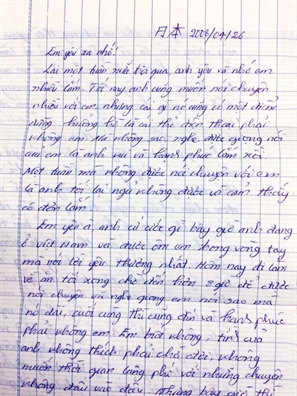 日本 2008/04/26
Em yêu xa nhớ!
Lại một tuần nữa trôi qua, anh yêu và nhớ em
nhiều lắm. Tối nay anh cũng muốn nói chuyện
nhiều với em, nhưng cái gì nó cũng có một điểm
dừng thường hà là cái thẻ điện thoại phải
không em. Mà không sao, nghe được giọng nói
của em là anh vui và hạnh phúc lắm rồi.
Một tuần mà không được nói chuyện với em
là anh tôi lại ngủ không được và cảm thấy
cô đơn lắm.
Em yêu à, anh cứ ước gì bây giờ anh đang
ở việt Nam và được ôm em trong vòng tay
mà nói lời yêu thương nhất. Hôm nay đi làm
về ăn tối xong chờ đến hơn 2 giờ để được
nói chuyện và nghe giọng em nói sao mà
nó dài, cuối cùng thì cũng đến và hạnh phúc
phải không em. Em biết không, tính của
anh không thích phải chờ đợi, không
muốn thời gian lãng phí với những chuyện
không đâu vào đâu, nhưng bây giờ thì